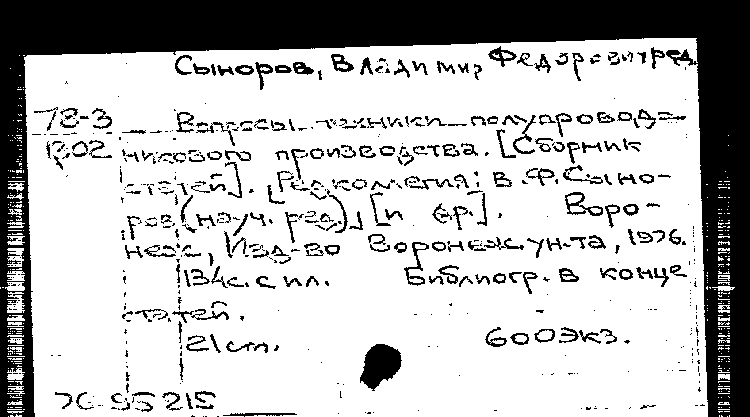 Сыноров, Владимир Федорович ред.
78-3 Вопросы техники полупровод-
1202 никового производства. [Сборник
статей]. [Редколлегия: В.Ф. Сыно-
ров (науч. ред.), [и др.]. Воро-
неж, Изд-во Воронеж. ун-та, 1976.
134с. с ил. Библиогр. в конце
статей.
21 cm. 600 экз.
76-95215